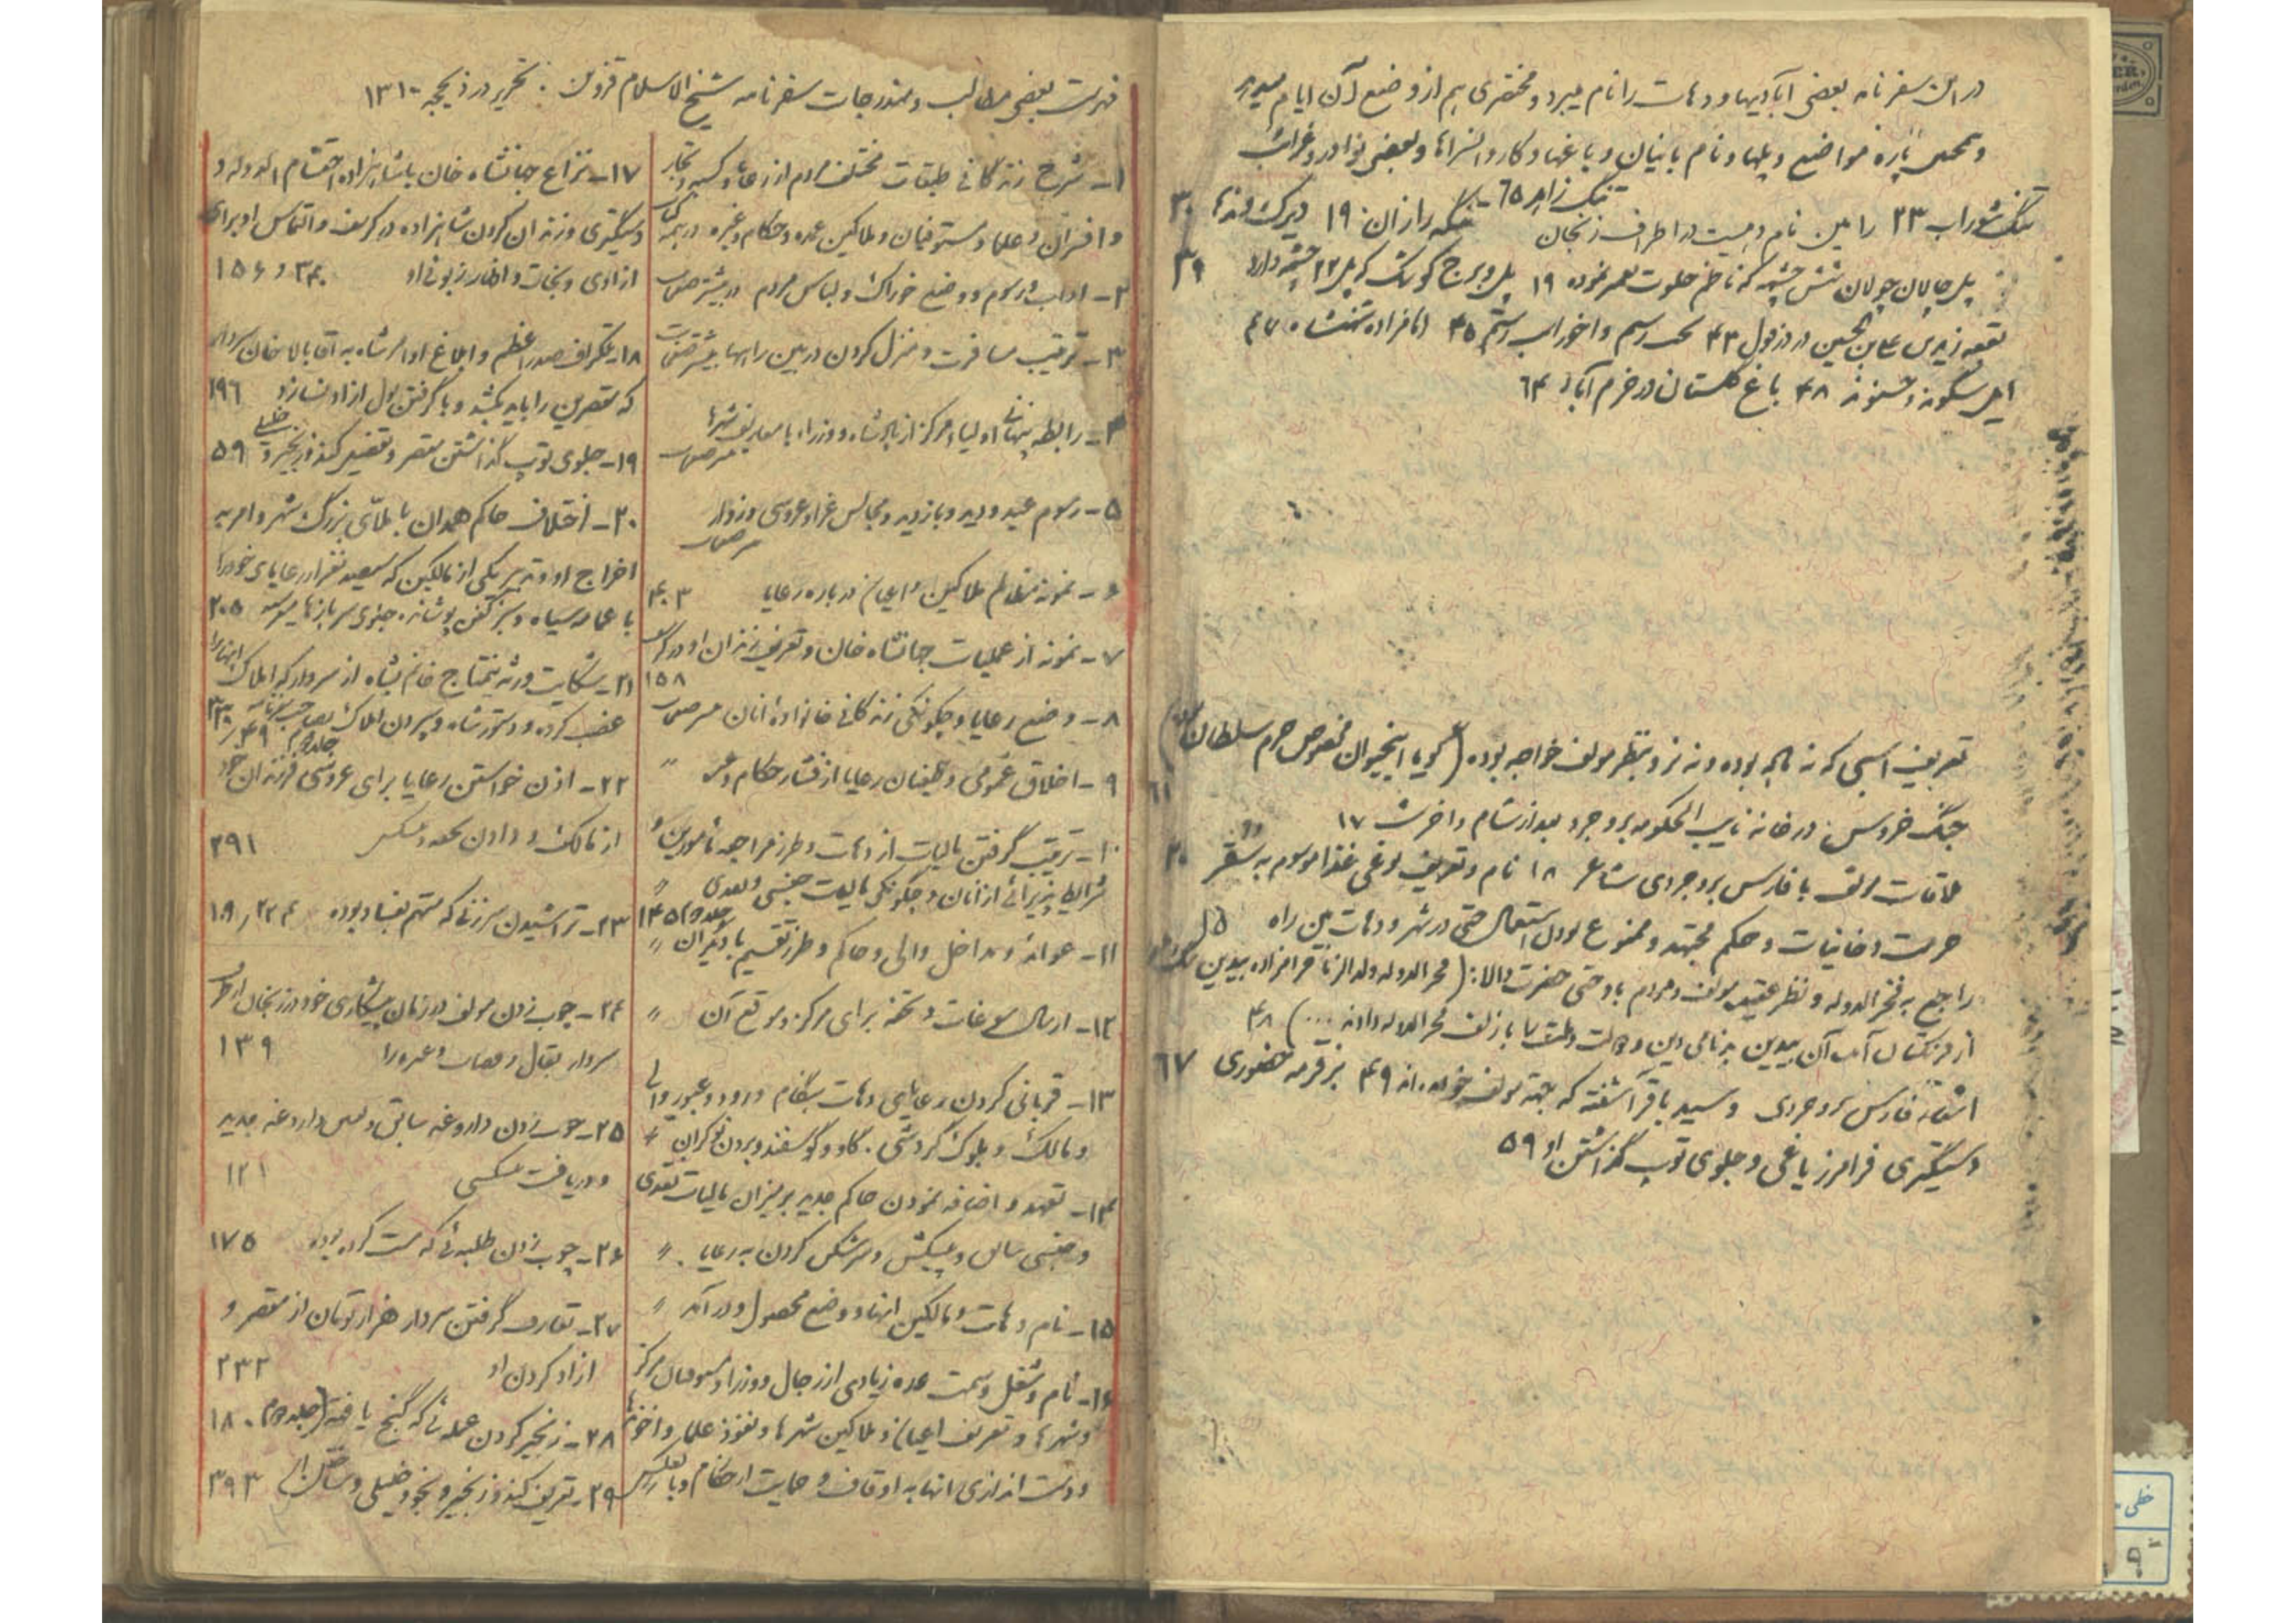 در این سفرنامه بعضی آبادیها و دهات را نام میبرد و مختصری هم از وضع آن ایام
و همچنین پاره مواضع و پلها و نام بانیان و باغها و کاروانسراها و بعضی نوادر و غرائب
تنگ زاهد ۶۵
تنگ شوراب ۲۳ را مین نام دهیست در اطراف زنجان تنگه رازان ۱۹ ۳۰
پل چالان چولان شش چشمه که ناظم خلوت تعمیر نموده ۱۹ پل و برج کوشک که پل ۱۲ چشمه دارد ۳۹
بقعه زید بن علی بن الحسین در دزفول ۴۳ رستم و اخور اسب رستم ۴۵ امامزاده شهنشاه ۴۷
ایل سگوند ۴۸ باغ گلستان در خرم آباد ۶۴
تعریف اسبی که نه ماده بوده و نه نر و بنظر مولف خواجه بوده (گویا اینحیوان مخصوص حرم سلطان
جنگ خروس در خانه نایب الحکومه بروجرد بعد از شام و اخر شب ۱۷
ملاقات مولف با فارس بروجردی شاعر ۱۸ نام و تعریف نوعی غذا موسوم به ۲۰
حرمت دخانیات و حکم مجتهد و ممنوع بودن استعمال حتی در شهر و دهات بین راه ۱۵
راجع به فخرالدوله و نظر عقیده مولف و مردم باو حتی حضرت والا: (فخرالدوله ولدالزنا قرامزاده بیدین
از فرنگستان آمد آن بیدین دین و دولت و ملت را با زلف فخرالدوله دادند ...) ۴۸
اشعار فارس بروجردی و سید باقر آشفته که بجهة مولف خوانده‌اند ۴۹ بز قرمه ۶۷
دستگیری فرامرز یاغی و جلوی توپ گذاشتن او ۵۹
فهرست بعضی مطالب و مندرجات سفرنامه شیخ الاسلام قزوین . تحریر در ذیحجه ۱۳۱۰
۱- شرح زندگانی طبقات مختلف مردم از رعایا و کسبه و تجار
و افسران و علما و مستوفیان و ملاکین عمده و حکام و غیره در همه کتاب
۲- اداب و رسوم و وضع خوراک و لباس مردم در بیشتر صفحات
۳- ترتیب مسافرت و منزل کردن در بین راهها بیشتر صفحات
۴- رابطه پنهانی اولیاء مرکز از پادشاه و وزراء با معاریف شهرها
در صفحات
۵- رسوم عید و دید و بازدید و مجالس عزا و عروسی
در صفحات
۶- نمونه مظالم ملاکین و اعیان در باره رعایا ۴۰۳
۷- نمونه از عملیات جهانشاه خان و تعریف زندان او در کرسف
۱۵۸
۸- وضع رعایا و چگونگی زندگانی خانواده انان در صفحات
۹- اخلاق عمومی رعایا از فشار حکام و غیره "
۱۰- ترتیب گرفتن مالیات از دهات و طرز مراجعه مأمورین و
شرایط پذیرائی از انان و چگونگی مالیات جنسی و نقدی "
جلد دوم ۱۴۵
۱۱- عوائد و مداخل والی و حاکم و طرز تقسیم با دیگران "
۱۲- ارسال سوغات و تحفه برای مرکز و موقع آن "
۱۳- قربانی کردن رعایای دهات بهنگام ورود و عبور والی
و مالک و بلوک گردشی . گاو و گوسفند و بردن نوکران "
۱۴- تعهد و اضافه نمودن حاکم جدید بر میزان مالیات نقدی
و جنسی سالی و پیشکش و سرشکن کردن به رعایا "
۱۵- نام دهات و مالکین انها و وضع محصول و درآمد "
۱۶- نام و شغل و سمت عده زیادی از رجال و وزراء و مستوفیان مرکز
و شهرها و تعریف اعیان و ملاکین شهرها و نفوذ علما و اخوندها
و دست اندازی انها به اوقاف و حمایت از حکام و یا بالعکس
۱۷- نزاع جهانشاه خان با شاهزاده احتشام الدوله و
دستگیری و زندان کردن شاهزاده در کرسف و التماس او برای
ازادی و نجات و اظهار زبونی او ۳۴۰ و ۱۵۶
۱۸- تلگراف صدراعظم و ابلاغ اوامر شاه به آقا بالاخان سردار
که مقصرین را باید بکشد و با گرفتن پول ازاد نسازد ۱۹۶
۱۹- جلوی توپ گذاشتن مقصر و تفسیر کند و زنجیر و خلیلی ۵۹
۲۰- اختلاف حاکم همدان با ملای بزرگ شهر و امر به
اخراج او و تدبیر یکی از مالکین که سیصد نفر از رعایای خود را
با عمامه سیاه و سبز کفن پوشانده جلوی سربازها میفرستد ۲۰۵
۲۱- شکایت ورثه تاج خانم بشاه از سردار که املاک انها را
غصب کرده و دستور شاه و پس دادن املاک جلد دوم
۲۲- اذن خواستن رعایا برای عروسی فرزندان خود
از مالک و دادن تحفه و پیشکش ۲۹۱
۲۳- تراشیدن سر زنی که متهم بفساد بوده ۲۲۴ , ۱۸۹
۲۴- چوب زدن مولف در زمان پیشکاری خود در زنجان از طرف
سردار بقال و قصاب و غیره را ۱۳۹
۲۵- چوب زدن داروغه سابق و تعیین داروغه جدید
و دریافت پیشکشی ۱۲۱
۲۶- چوب زدن طلبه‌ئی که مست کرده بوده ۱۷۵
۲۷- تعارف گرفتن سردار هزار تومان از مقصر و
ازاد کردن او ۲۳۲
۲۸- زنجیر کردن عمله‌ئی که گنج یافته (جلد دوم) ۱۸۰
۲۹- تعریف کند و زنجیر و خلیلی ۳۹۳